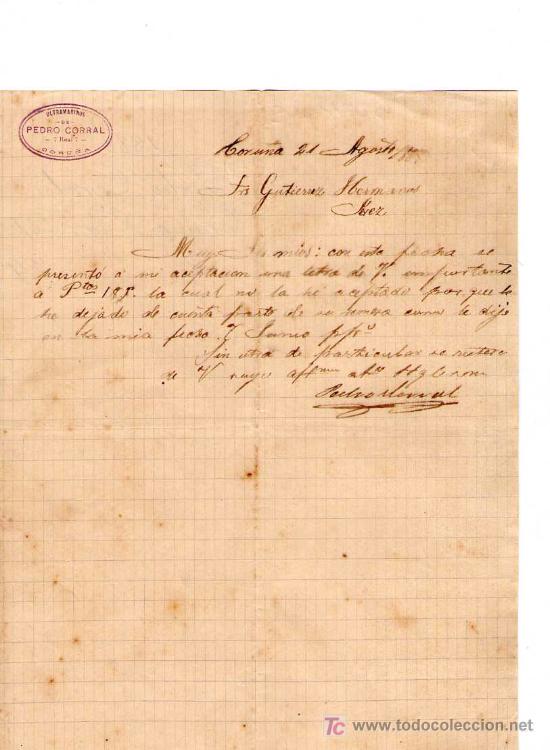 ULTRAMARINOS
DE
PEDRO CORRAL
7 Real 7
CORUÑA
Coruña 21 Agosto
Srs Gutierrez Hermanos
Jerez
Muy Srs mios: con esta fecha se
presentó á mi aceptacion una letra de V. importante
á Ptas 185. la cual no la hé aceptado por que la
he dejado de cuenta
en la mia fecha 7 Junio pp.º
Sin otra de particular se
de V
Pedro Corral
TC www.todocoleccion.net